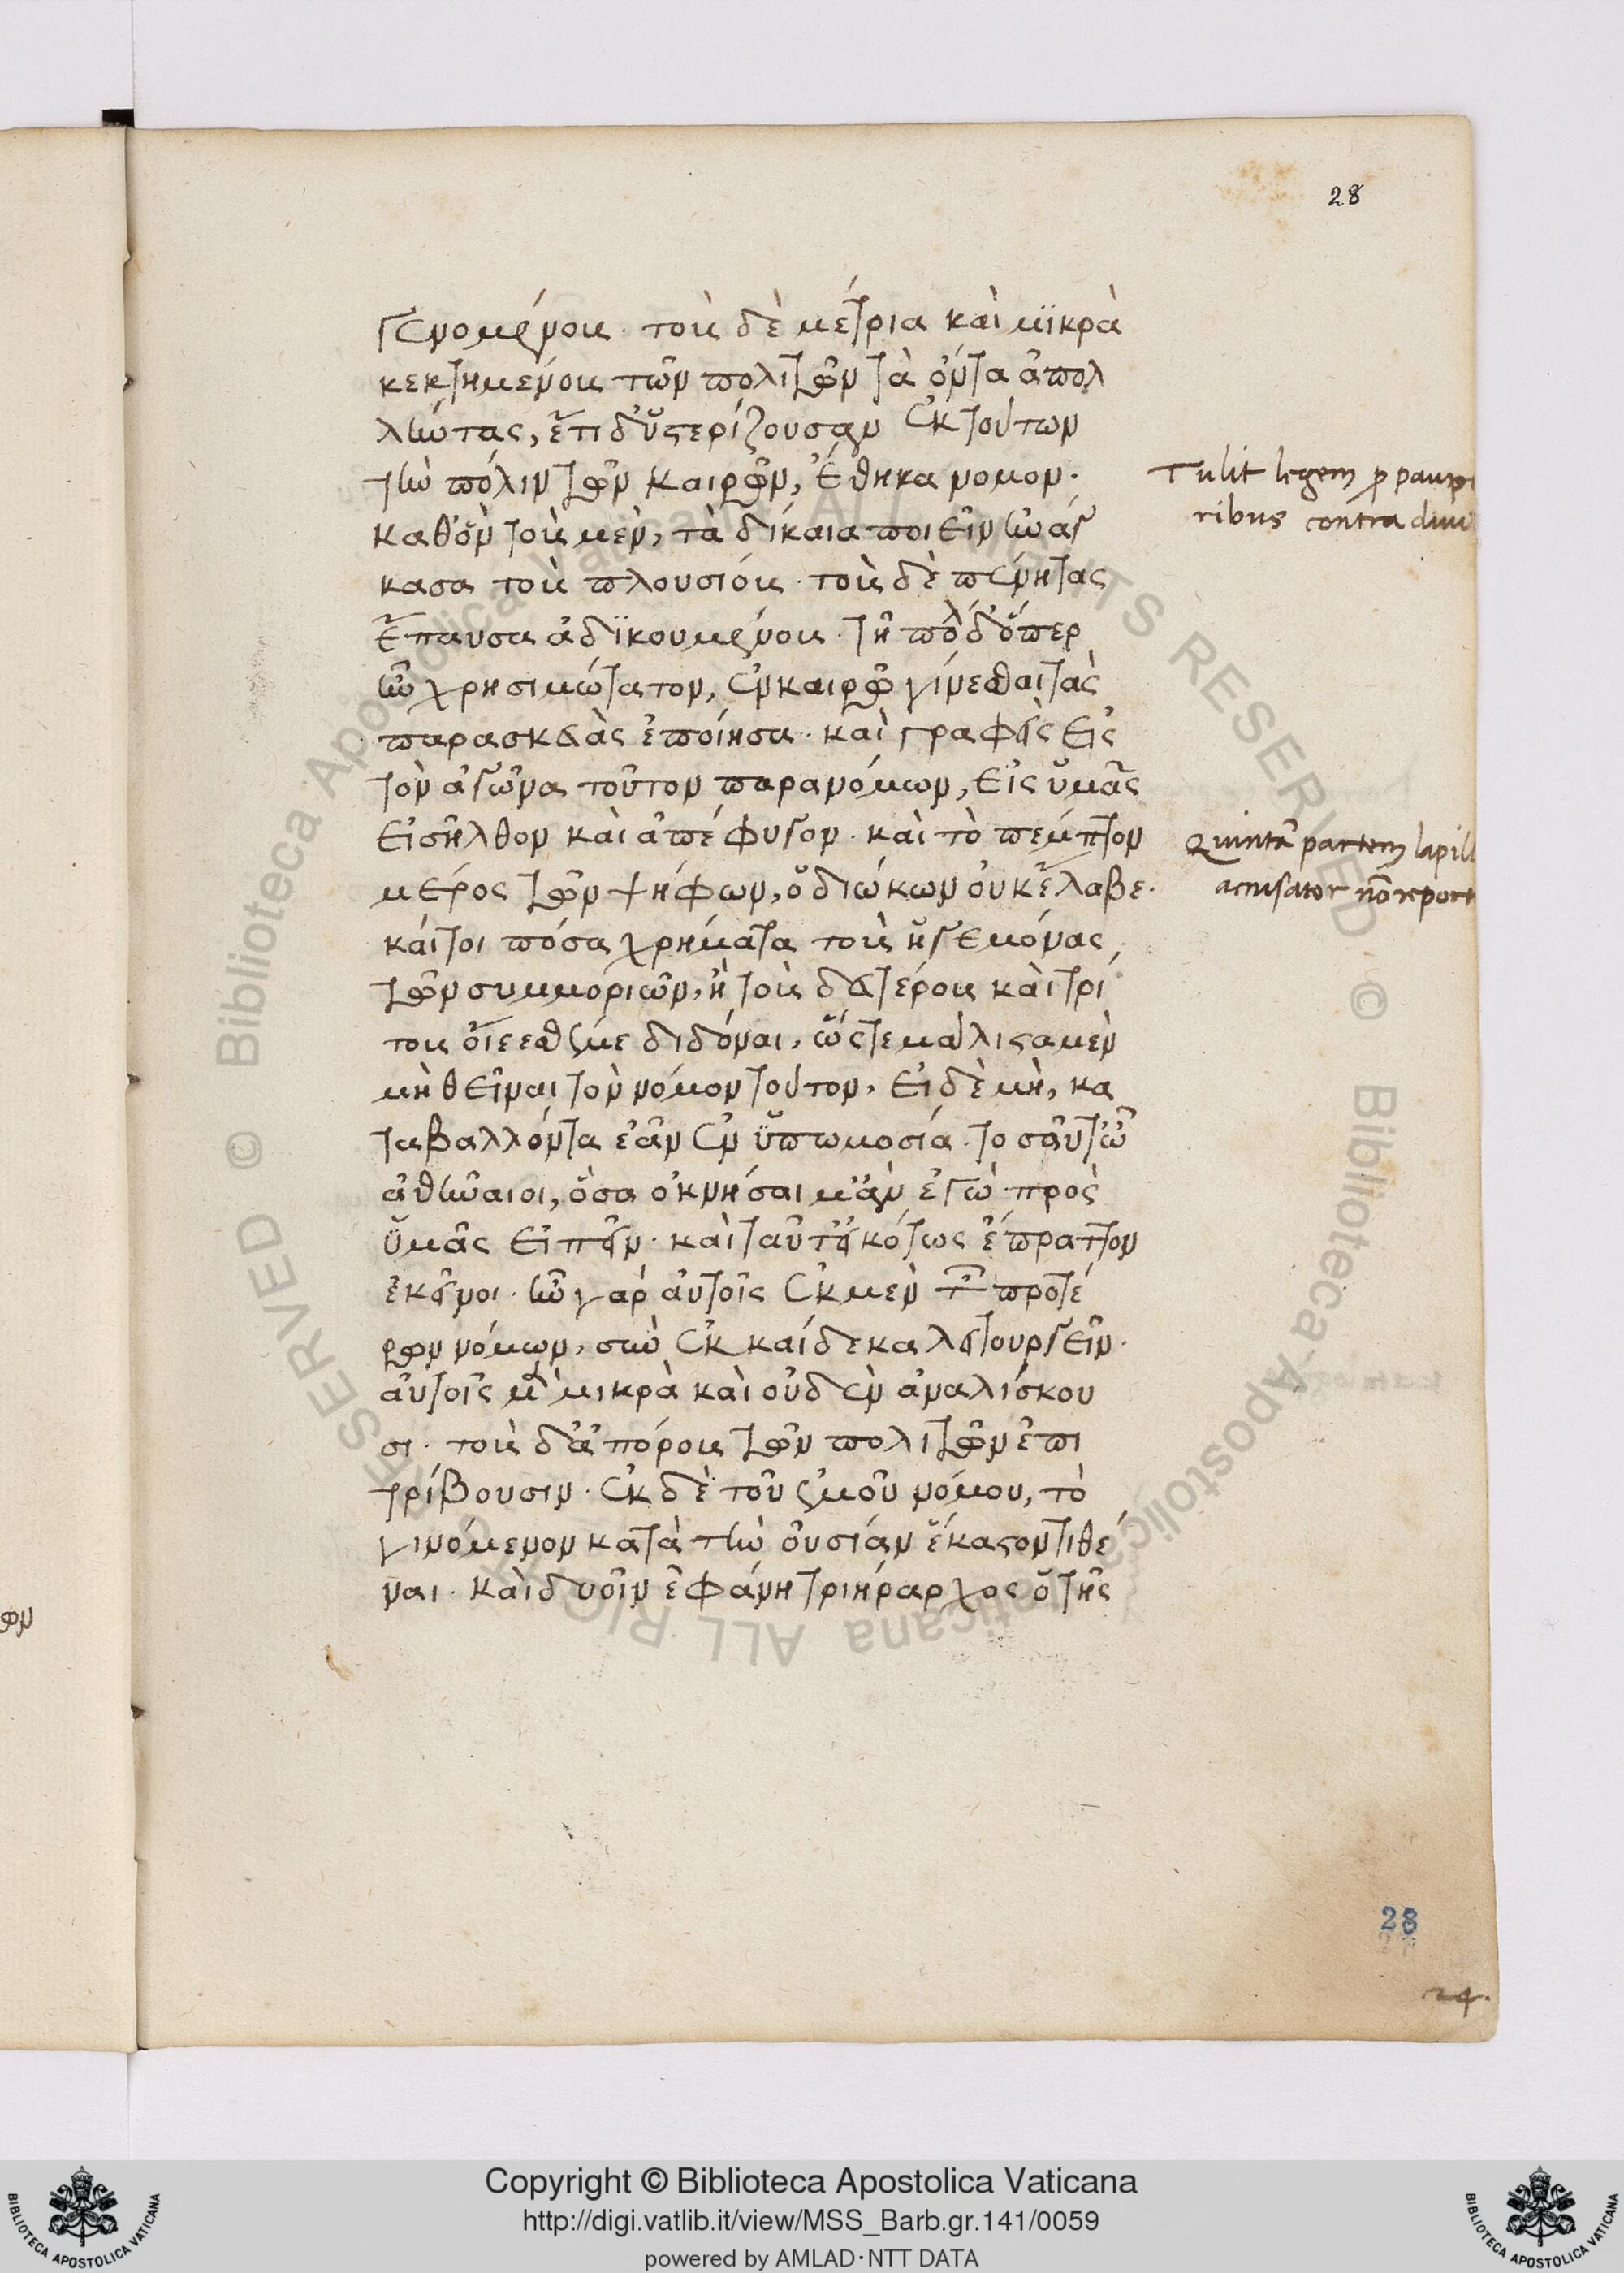 28
γενομένους· τοὺς δὲ μέτρια καὶ μϊκρὰ
κεκτημένους τῶν πολιτῶν τὰ ὄντα ἀπολ
λύντας, ἔτι δ' ὑστερίζουσαν ἐκ τούτων
τὴν πόλιν τῶν καιρῶν, ἔθηκα νομον·
καθ' ὃν τοὺς μὲν, τὰ δίκαια ποιεῖν ἠνάγ
κασα τοὺς πλουσίους· τοὺς δὲ πένητας
ἔπαυσα ἀδϊκουμένους· τῇ πόλ δ' ὅπερ
ἦν χρησιμώτατον, ἐν καιρῷ γίνεσθαι τὰς
παρασκευὰς ἐποίησα· καὶ γραφεὶς εἰς
τὸν ἀγῶνα τοῦτον παρανόμων, εἰς ὑμᾶς
εἰσῆλθον καὶ ἀπέφυγον· καὶ τὸ πέμπτον
μέρος τῶν ψήφων, ὁ διώκων οὐκ ἔλαβε·
καίτοι πόσα χρήματα τοὺς ἡγεμόνας
τῶν συμμοριῶν, ἢ τοὺς δευτέρους καὶ τρί
τους οἴεσθέ με διδόναι, ὥστε μάλιστα μὲν
μὴ θεῖναι τὸν νόμον τοῦτον, εἰ δὲ μὴ, κα
ταβαλλόντα ἐᾶν ἐν ὑπωμοσία· τοσαῦτ' ὦ
ἀθηναῖοι, ὅσα ὀκνήσαιμ' ἂν ἐγὼ πρὸς
ὑμᾶς εἰπεῖν· καὶ ταῦτ' εἰκότως ἔπραττον
ἐκεῖνοι· ἦν γαρ αὐτοῖς ἐκ μὲν τῶν προτέ
ρων νόμων, συν ἑκκαίδεκα λειτουργεῖν·
αὐτοῖς μὲν μικρὰ καὶ οὐδὲν ἀναλίσκου
σι· τοὺς δ' ἀπόρους τῶν πολιτῶν ἐπι
τρίβουσιν· ἐκ δὲ τοῦ ἐμοῦ νόμου, τὸ
γινόμενον κατὰ τὴν οὐσίαν ἕκαστον τιθέ
ναι· καὶ δυοῖν ἐφάνη τριήραρχος ὁ τῆς
Tulit legem p paupe
ribus contra divi
Quintā partem lapill
accusator nō report
ων
28
24.
Copyright © Biblioteca Apostolica Vaticana
http://digi.vatlib.it/view/MSS_Barb.gr.141/0059
powered by AMLAD·NTT DATA
BIBLIOTECA APOSTOLICA VATICANA
BIBLIOTECA APOSTOLICA VATICANA
© Biblioteca Apostolica Vaticana ALL RIGHTS RESERVED
© Biblioteca Apostolica Vaticana ALL RIGHTS RESERVED